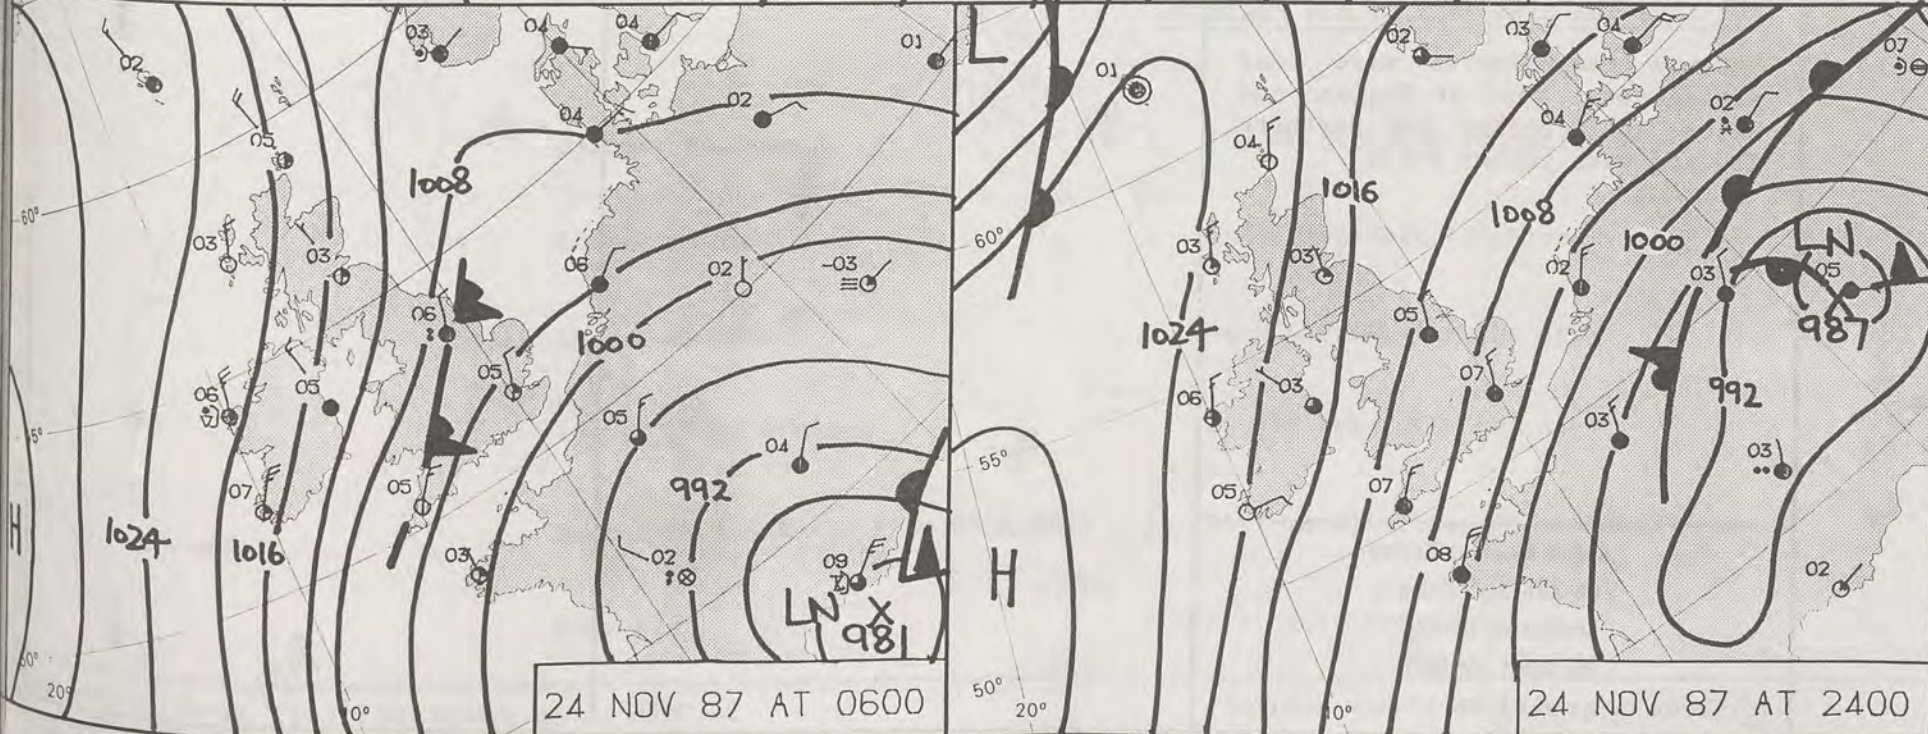 02
03
04
04
01
05
04
02
1008
60°
03
03
06
02
-03
06
1000
06
05
05
05
04
992
07
05
H
1024
1016
03
02
09
LN
X
981
20°
10°
24 NOV 87 AT 0600
L
01
02
03
04
07
04
04
02
1016
1008
60°
03
03
1000
02
03
LN
05
1024
05
987
06
03
07
992
03
55°
05
07
03
H
08
02
50°
20°
10°
24 NOV 87 AT 2400